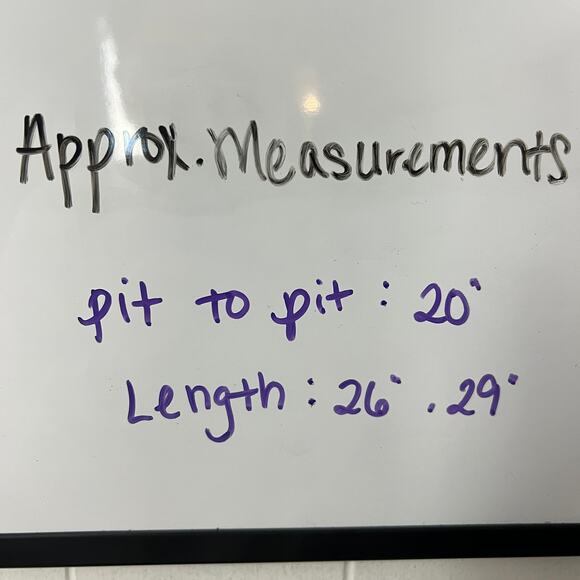 Approx. Measurements
pit to pit : 20"
Length : 26" . 29"